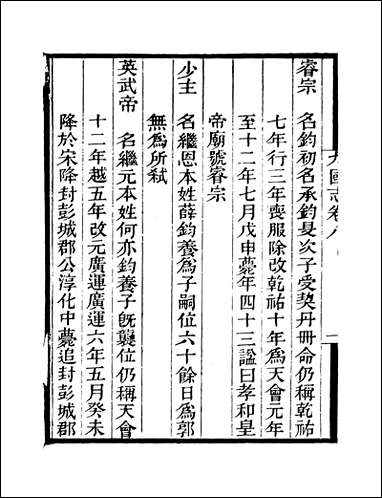 睿宗　名鈞初名承鈞旻次子受契丹冊命仍稱乾祐
七年行三年喪服除改乾祐十年為天會元年
至十二年七月戊申薨年四十三諡曰孝和皇
帝廟號睿宗
少主　名繼恩本姓薛鈞養為子嗣位六十餘日為郭
無為所弒
英武帝　名繼元本姓何亦鈞養子旣襲位仍稱天會
十二年越五年改元廣運廣運六年五月癸未
降於宋降封彭城郡公淳化中薨追封彭城郡
九國志卷八
一